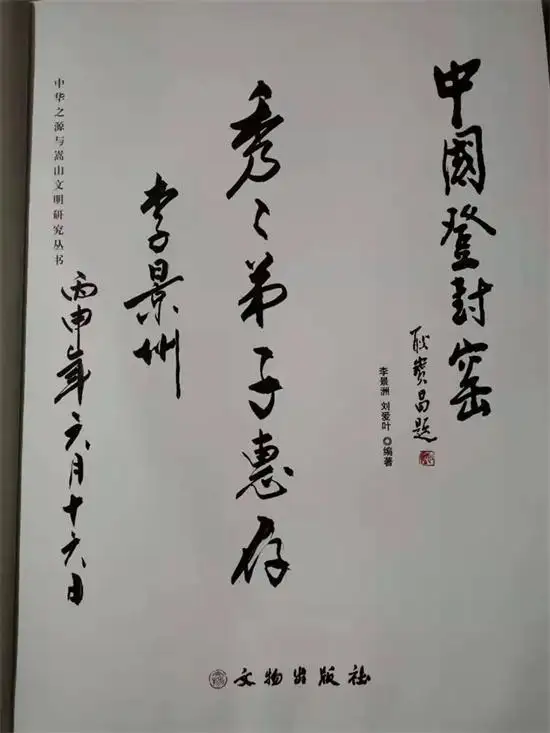 中國登封窑
耿寶昌题
李景洲 刘爱叶 ◎编著
秀〻弟子惠存
李景州
丙申年六月十六日
中华之源与嵩山文明研究丛书
文物出版社